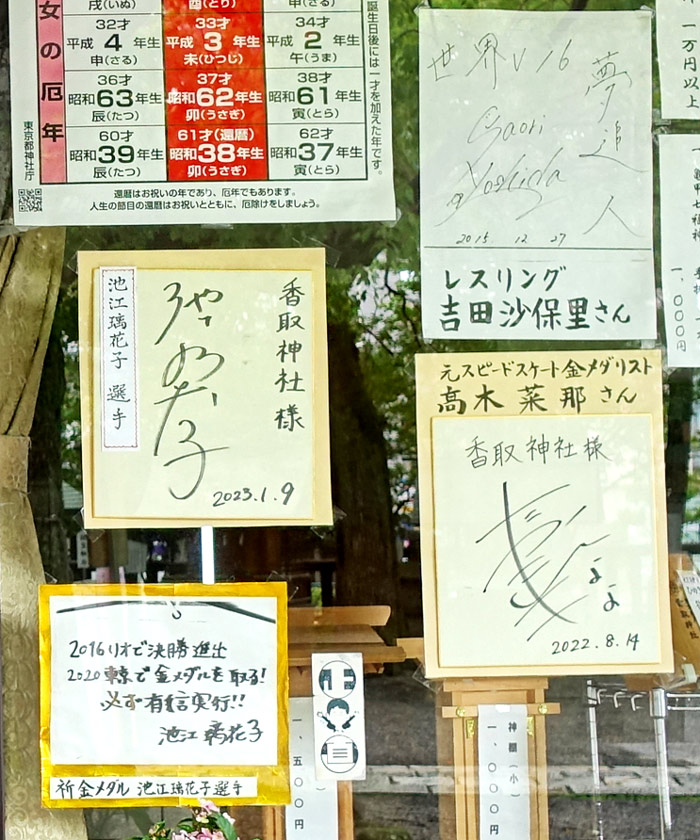 女の厄年
戌(いぬ) 酉(とり) 申(さる)
32才 33才 34才
平成4年生 平成3年生 平成2年生
申(さる) 未(ひつじ) 午(うま)
36才 37才 38才
昭和63年生 昭和62年生 昭和61年生
辰(たつ) 卯(うさぎ) 寅(とら)
60才 61才(還暦) 62才
昭和39年生 昭和38年生 昭和37年生
辰(たつ) 卯(うさぎ) 寅(とら)
誕生日後には一才を加えた年です。
東京都神社庁
還暦はお祝いの年であり、厄年でもあります。
人生の節目の還暦はお祝いとともに、厄除けをしましょう。
世界V16
夢追人
Saori
Yoshida
2015 12 27
レスリング
吉田沙保里さん
一万円以上
一、〇〇〇円
香取神社様
池江璃花子 選手
2023.1.9
元スピードスケート金メダリスト
高木菜那さん
香取神社様
2022.8.14
2016リオで決勝進出
2020東京で金メダルを取る!
必ず有言実行!!
池江璃花子
祈金メダル 池江璃花子選手
一、五〇〇円
神棚(小)
一、〇〇〇円